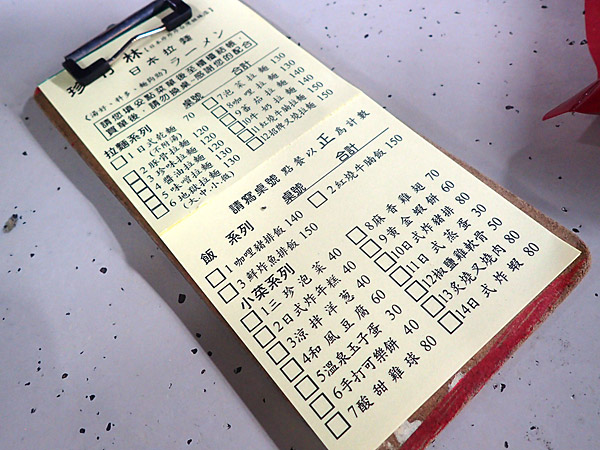 珍 林
日本拉麵
ラーメン
(湯好、料多、麵夠勁)
請您填妥點菜單後至櫃檯點帳、
買單後、請勿換桌、感謝您的配合
拉麵系列 桌號 合計
1 日式乾麵 70
(不附湯)
2 豚骨拉麵 130
3 珍味拉麵 120
4 醬油拉麵 130
5 味噌拉麵 130
6 地獄拉麵 130
(大中小風)
7 泡菜拉麵 130
8 咖哩拉麵 140
9 番茄拉麵 130
10 牛奶拉麵 140
11 紅燒牛腩拉麵 150
12 招牌叉燒拉麵 150
請寫桌號 點餐以 正 為計數
飯 系列 桌號 合計
1 咖哩豬排飯 140
2 紅燒牛腩飯 150
3 鮮炸魚排飯 150
小菜系列
1 三珍泡菜 40
2 日式炸年糕 40
3 涼拌洋蔥 40
4 和風豆腐 60
5 溫泉玉子蛋 30
6 手打可樂餅 40
7 酸甜雞球 80
8 麻香雞翅 70
9 黃金蝦餅 60
10 日式炸豬排 80
11 日式蒸蛋 30
12 椒鹽雞軟骨 50
13 炙燒叉燒肉 80
14 日式炸蝦 80